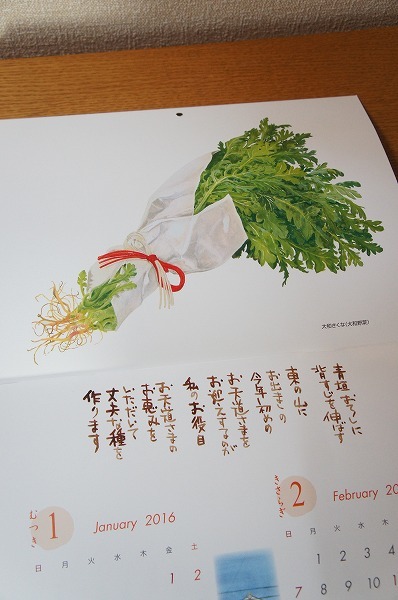 大和きくな(大和野菜)
青垣おろしに
背すじを伸ばす
東の山に
お出ましの
今年初めの
お天道さまを
お迎えするのが
私のお役目
お天道さまの
お恵みを
いただいて
丈夫な種を
作ります
むつき
1
January 2016
日 月 火 水 木 金 土
1 2
きさらぎ
2
February 20
日 月 火 水
1 2 3
7 8 9 10